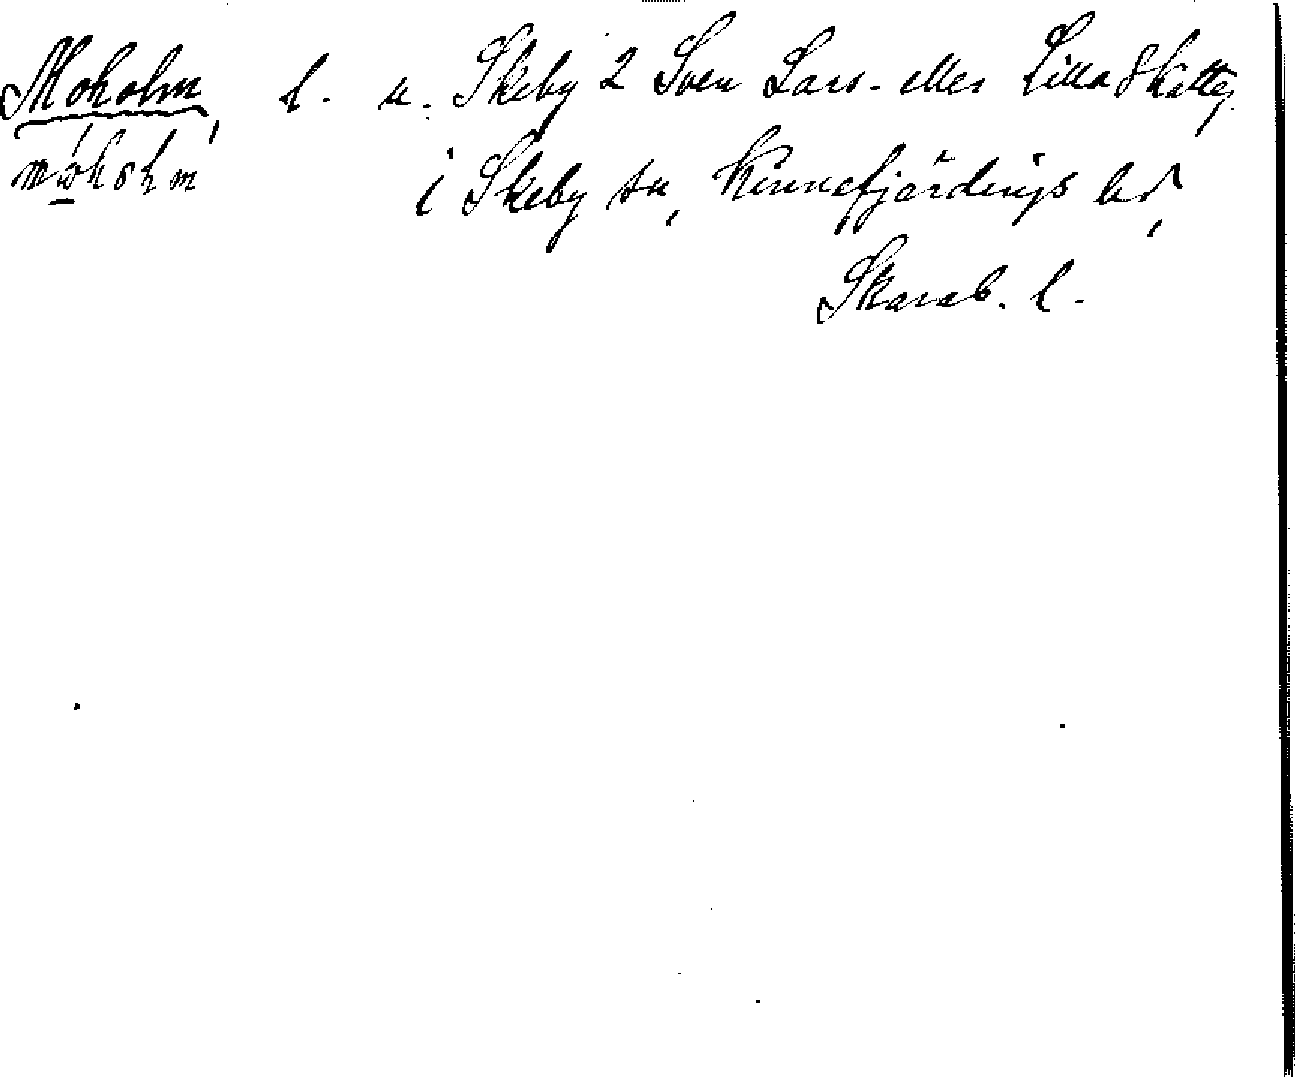 Moholm, l. u. Skeby 2 Sven Lars- eller Lilla Skatteg.
i Skeby sn, Kinnefjärdings hd,
Skarab. l.